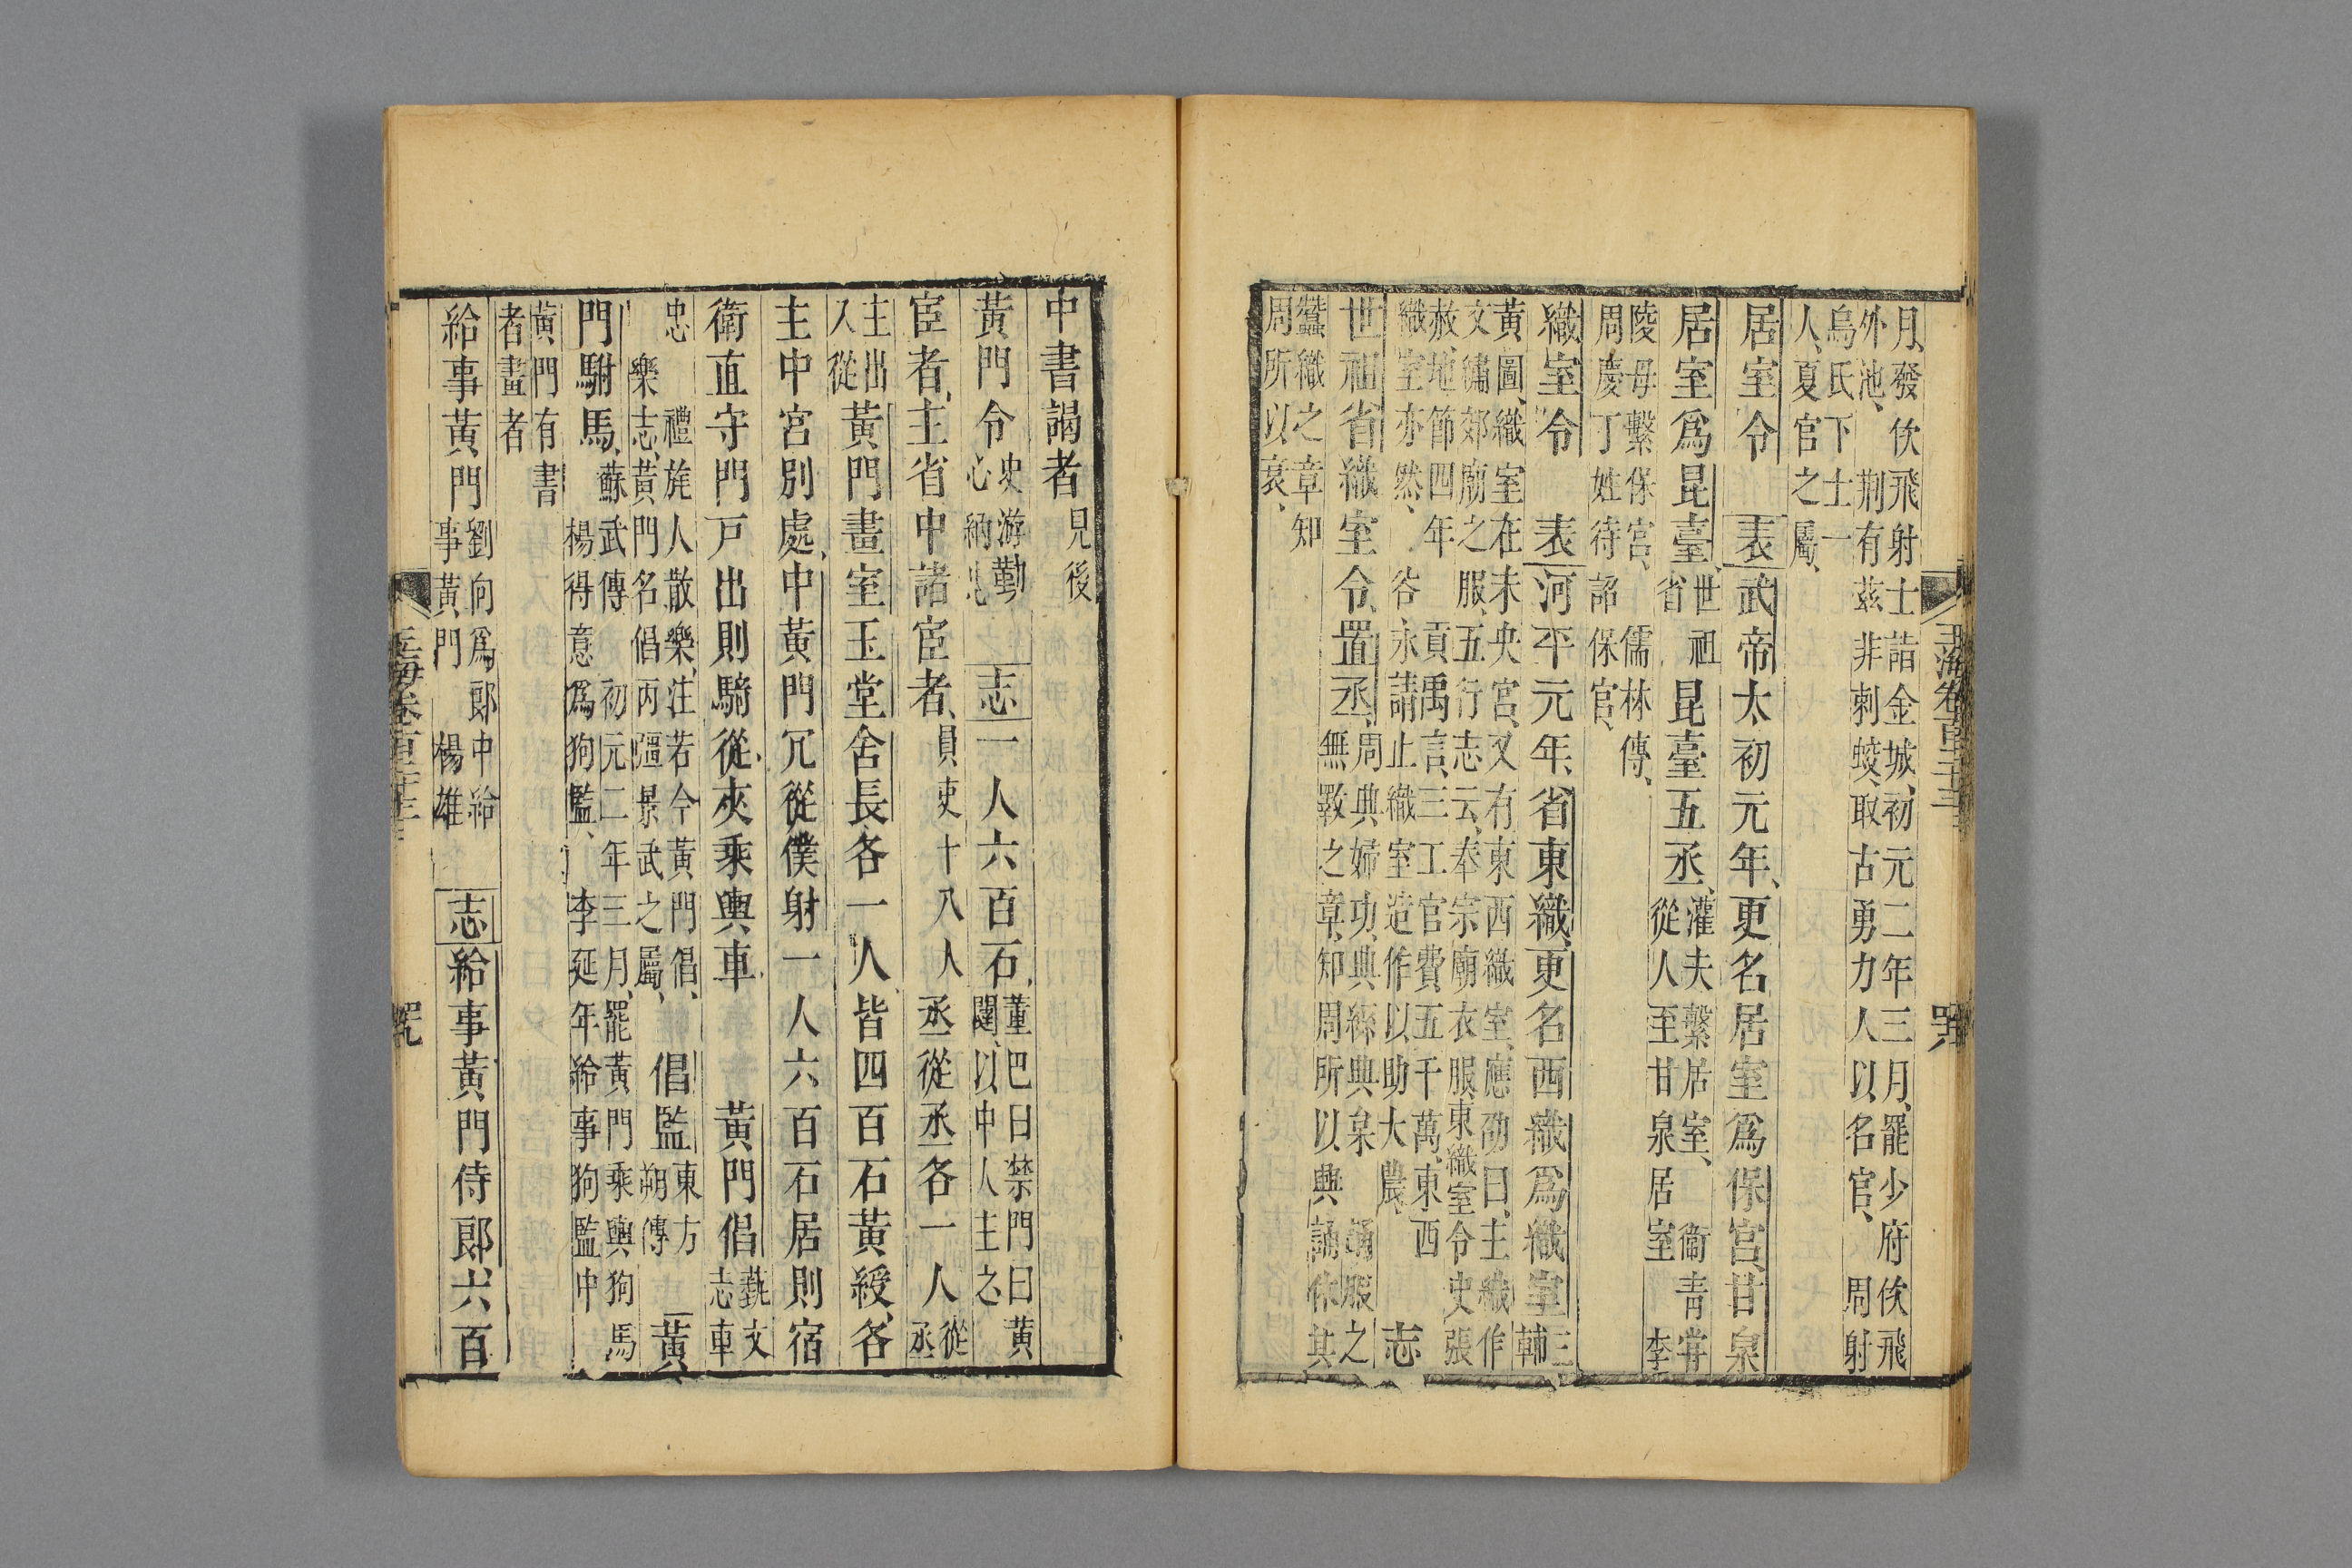 月、發佽飛射士詣金城、初元二年三月、罷少府佽飛
外池、荆有茲非刺蛟、取古勇力人以名官、周射
鳥氏下士一
人、夏官之屬、
居室令 表武帝太初元年、更名居室爲保宫、甘泉
居室爲昆臺、世祖省昆臺五丞、灌夫繫居室、衞青嘗從人至甘泉居室李
陵母繫保宫、儒林傳、
周慶丁姓待詔保官、
織室令 表河平元年、省東織、更名西織爲織室三輔
黃圖、織室在未央宮、又有東西織室、應劭曰、主織作
文繡郊廟之服、五行志云、奉宗廟衣服、東織室令史張
赦、地節四年 貢禹言、三工官費五千萬、東西
織室亦然、谷永請止織室造作以助大農、志
世祖省織室令、置丞、周典婦功、典絲典枲無斁之章、知周所以興誦服之誦休其
蠶織之章知
周所以衰、
玉海卷百二十三
中書謁者見後
黃門令史游勤心納忠 志一人六百石、董巴曰禁門曰黃闥、以中人主之
宦者、主省中諸宦者、員吏十八人丞從丞各一人從丞
主出入從黃門畫室玉堂舍長各一人、皆四百石黃綬、各
主中宮別處、中黃門冗從僕射一人六百石居則宿
衛直守門戸出則騎從、夾乘輿車 黃門倡藝文志車
忠 禮旄人散樂、注若今黃門倡、
樂志、黃門名倡丙疆景武之屬、倡監東方朔傳黃
門駙馬、蘇武傳 初元二年三月、罷黃門乘輿狗馬楊得意爲狗監、李延年給事狗監中
黃門有書
者畫者
給事黃門劉向爲郎中給事黃門 楊雄 志給事黃門侍郎六百